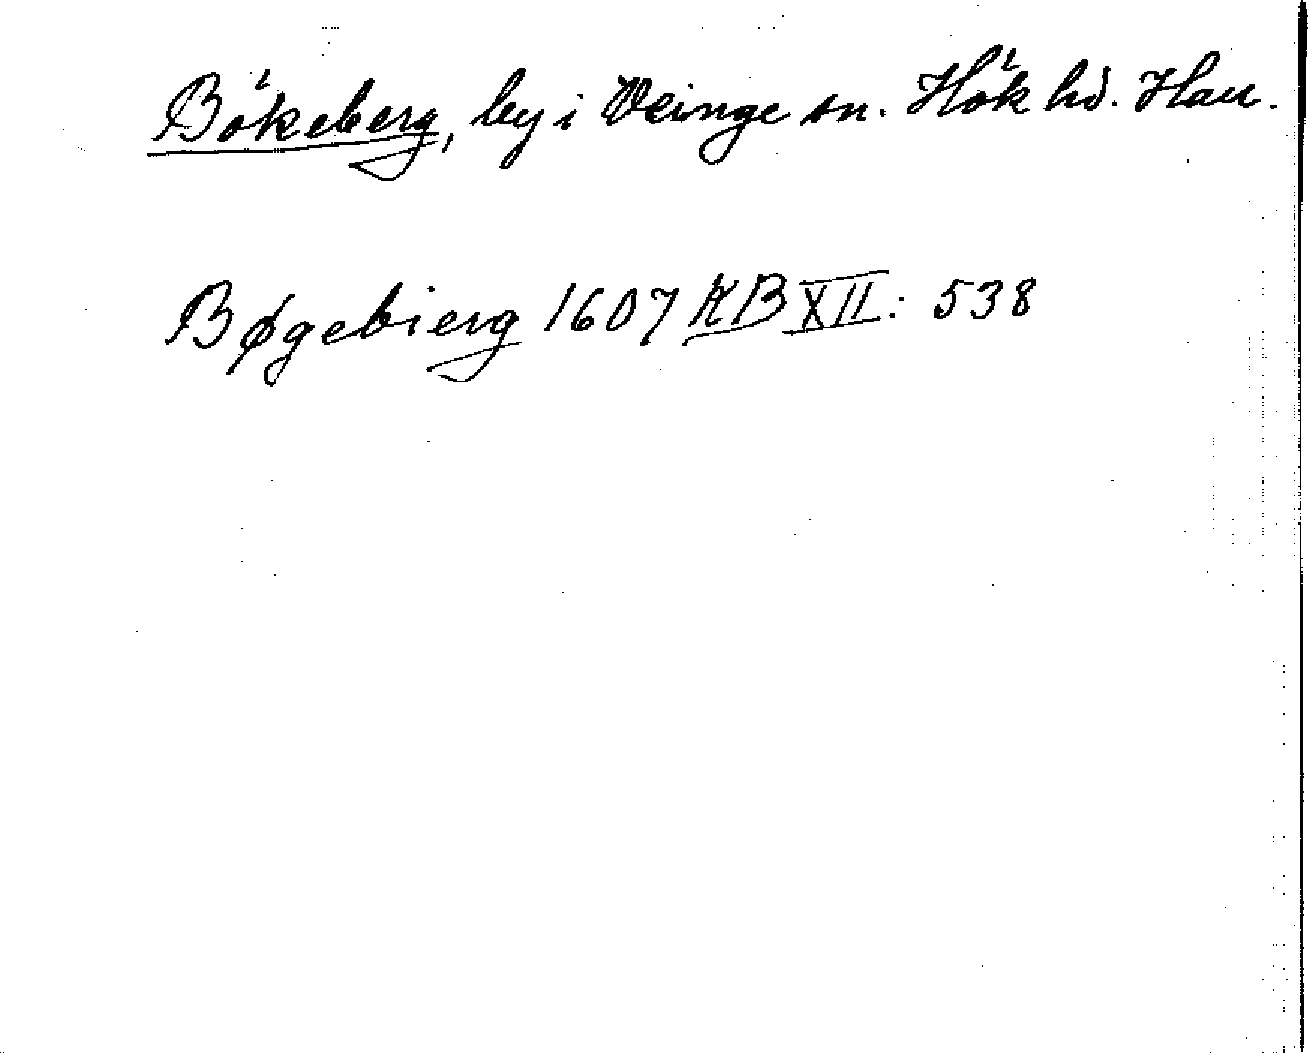 Bökeberg, by i Veinge sn. Hök hd. Hall.
Bøgebierg 1607 KB XII: 538